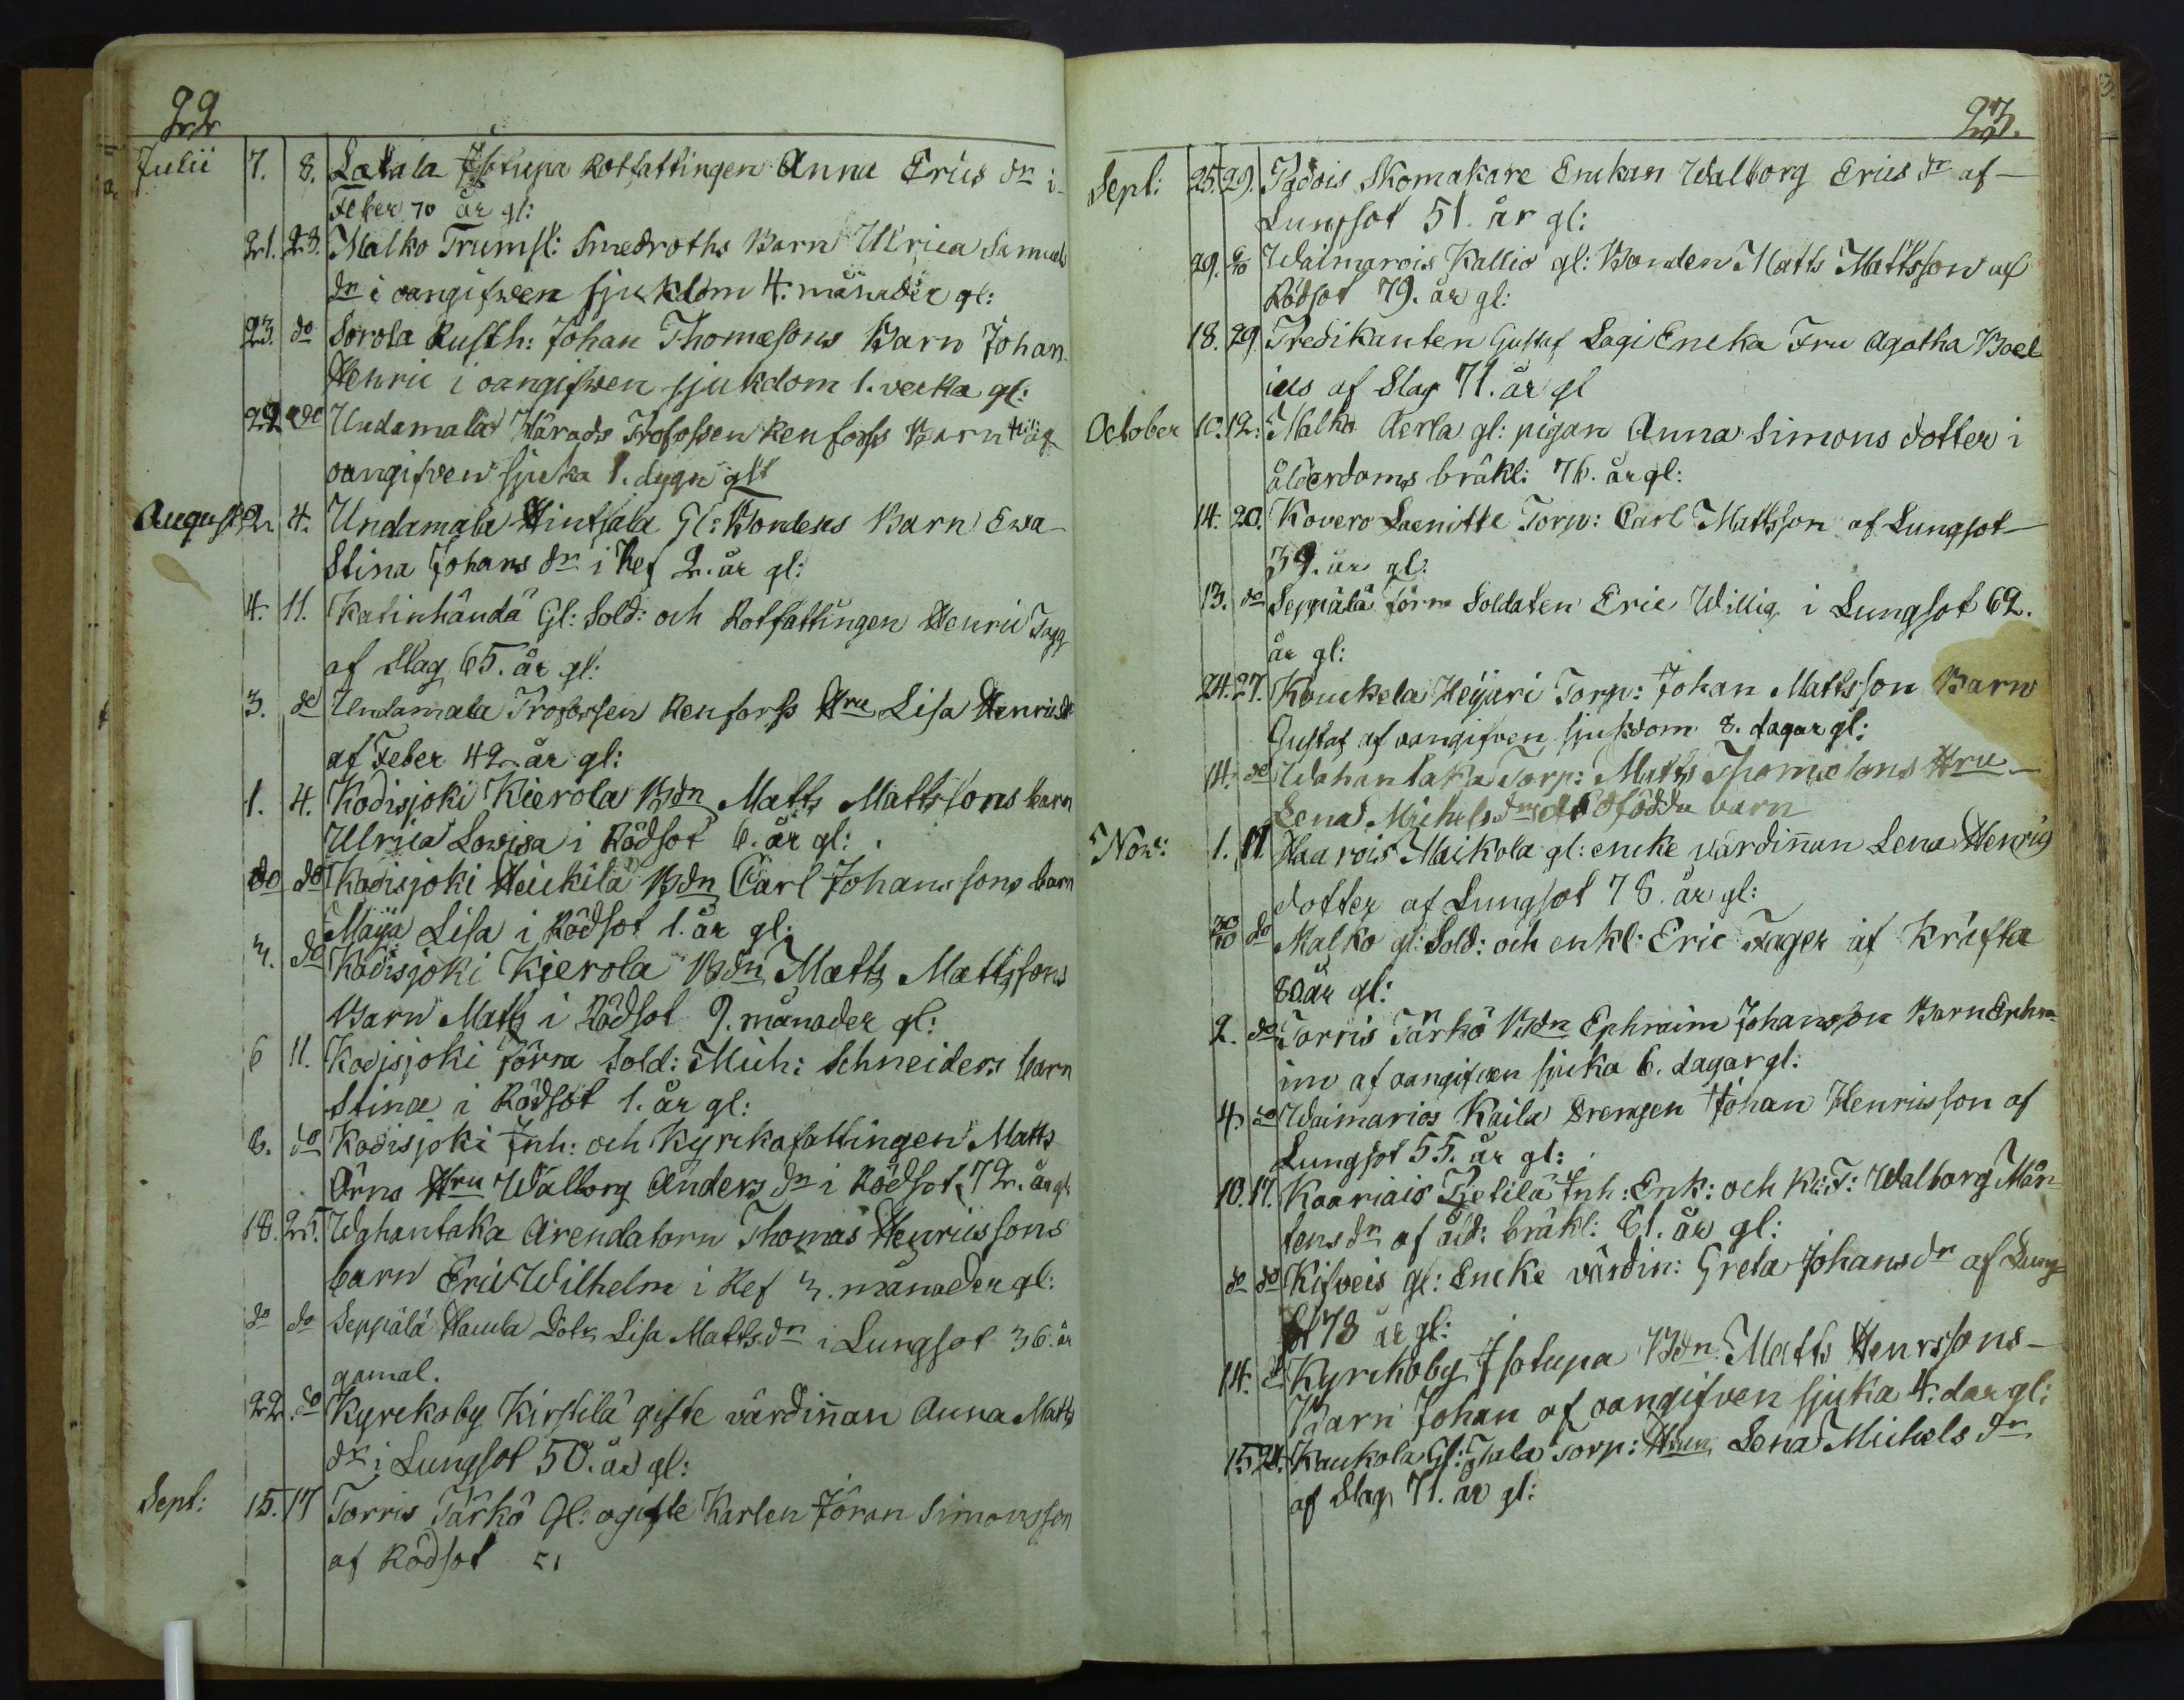 22
Julii 7. 8. Latala Isotupa Rotfattingen Anna Erics dr i
Feber 70 år gl:
21. 23. Malko Trumsl: Smedroths Barn Ulrica Samuels
dr i oangifwen sjukdom 4. månader gl:
23. do Sorola Rusth: Johan Thomæsons Barn Johan
Henric i oangifwen sjukdom 1. vecka gl:
22 do Undamala Härads Profossen Renforss Barn af
oangifven sjuka 1. dygn glt
August 2. 4. Undamala Hintsala Gl: Bondens Barn Ewa
Stina Johans dr i Ref 2. år gl:
4. 11. Katinhändä Gl: Sold: och Rotfattingen Henric Tagg
af Slag 65. år gl:
3. do Undamala Profossen Renforss Hru Lisa Henrics dr
af Feber 42 år gl:
1. 4. Kodisjoki Kierola Bdn Matts Mattssons barn
Ulrica Lowisa i Rödsot 6. år gl:
do do Kodisjoki Heickilä Bdn Carl Johanssons barn
Maija Lisa i Rödsot 1. år gl:
3. do Kodisjoki Kierola Bdn Matts Mattssons
Barn Matts i Rödsot 9. månader gl:
6 11. Kodisjoki förra Sold: Mich: Schneiders barn
Stina i Rödsot 1. år gl:
6. do Kodisjoki Inh: och Kyrckofattingen Matts
Örns Hru Walborg Anders dr i Rödsot 72. år gl
18. 25. Wahantaka Arendatorn Thomas Henricssons
barn Eric Wilhelm i Ref 3. månader gl:
do do Seppälä Haula Dotr Lisa Mattsdr i Lungsot 36. år
gamal.
22 do Kyrckoby Kirstilä gifte värdiñan Anna Matts
dr i Lungsot 50. år gl:
Sept: 15. 17 Torris Tärkö Gl: ogifte Karlen Jöran Simonsson
af Rödsot 51
23.
Sept: 25. 29. Padois Skomakare Enckan Walborg Erics dr af
Lungsot 51. år gl:
29. 2/10 Waimarois Kallio gl: Bonden Matts Mattsson af
Rödsot 79. år gl:
18. 29. Predikanten Gustaf Lagi Encka Fru Agatha Boel
ius af Slag 71. år gl
October 10. 12. Malko Aerla gl: pigan Anna Simons dotter i
ålderdoms bräkl: 76. år gl:
14. 20. Kovero Laenitte Torp: Carl Mattsson af Lungsot
39. år gl:
13. do Seppälä förra Soldaten Eric Willig i Lungsot 62.
år gl:
24. 27. Kouckela Heijari Torp: Johan Mattsson Barn
Gustaf af oangifven sjukdom 8. dagar gl:
14. do Wahantaka Torp: Matts Thomæsons Hru
Lena Michelsdrs dödfödda barn
Nov: 1. 11 Haarois Maikola gl: encke värdiñan Lena Henrics
dotter af Lungsot 78. år gl:
30/10 do Malko gl: Sold: och enkl: Eric Fager af Kräfta
80 år gl:
2. do Torris Tärkö Bdn Ephraim Johansson Barn Ephra
im af oangifven sjuka 6. dagar gl:
4. do Waimarios Kaila Drengen Johan Henricsson af
Lungsot 55. år gl:
10. 17. Kaariais Pietilä Inh: Enk: och K:F: Walborg Mår
tens dr af åld: bräkl: 81. år gl:
do do Kifveis gl: Encke värdin: Greta Johansdr af Lung
sot 78 år gl:
14. do Kyrckoby Isotupa Bdn Matts Henrssons
Barn Johan af oangifven sjuka 4. dar gl:
15. 24. Kaukola Gl: Jala Torp: Hru Lena Michels dr
af Slag 71. år gl: